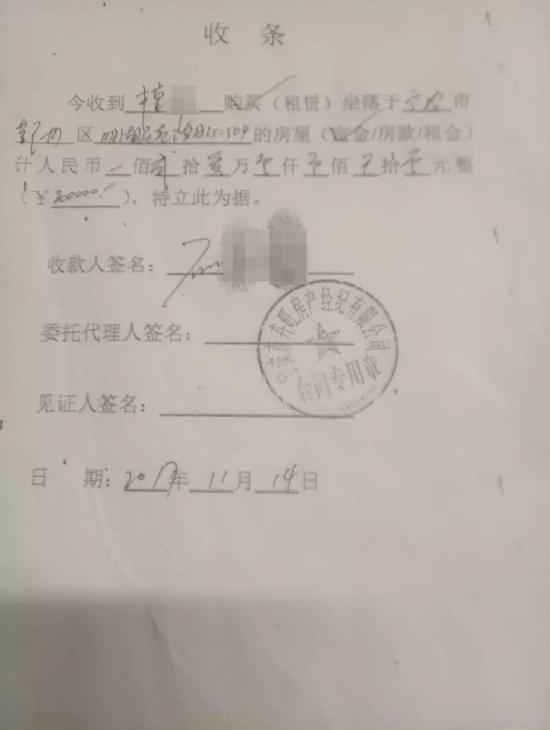 收 条
今收到 檀 购买（租赁）坐落于宁波市
鄞州区 25-509的房屋（定金/房款/租金）
计人民币 佰贰拾零万零仟零佰零拾零元整
（￥200000.），特立此为据。
收款人签名：
委托代理人签名：
房产经纪有限公司
合同专用章
见证人签名：
日 期：2017年 11月 14日